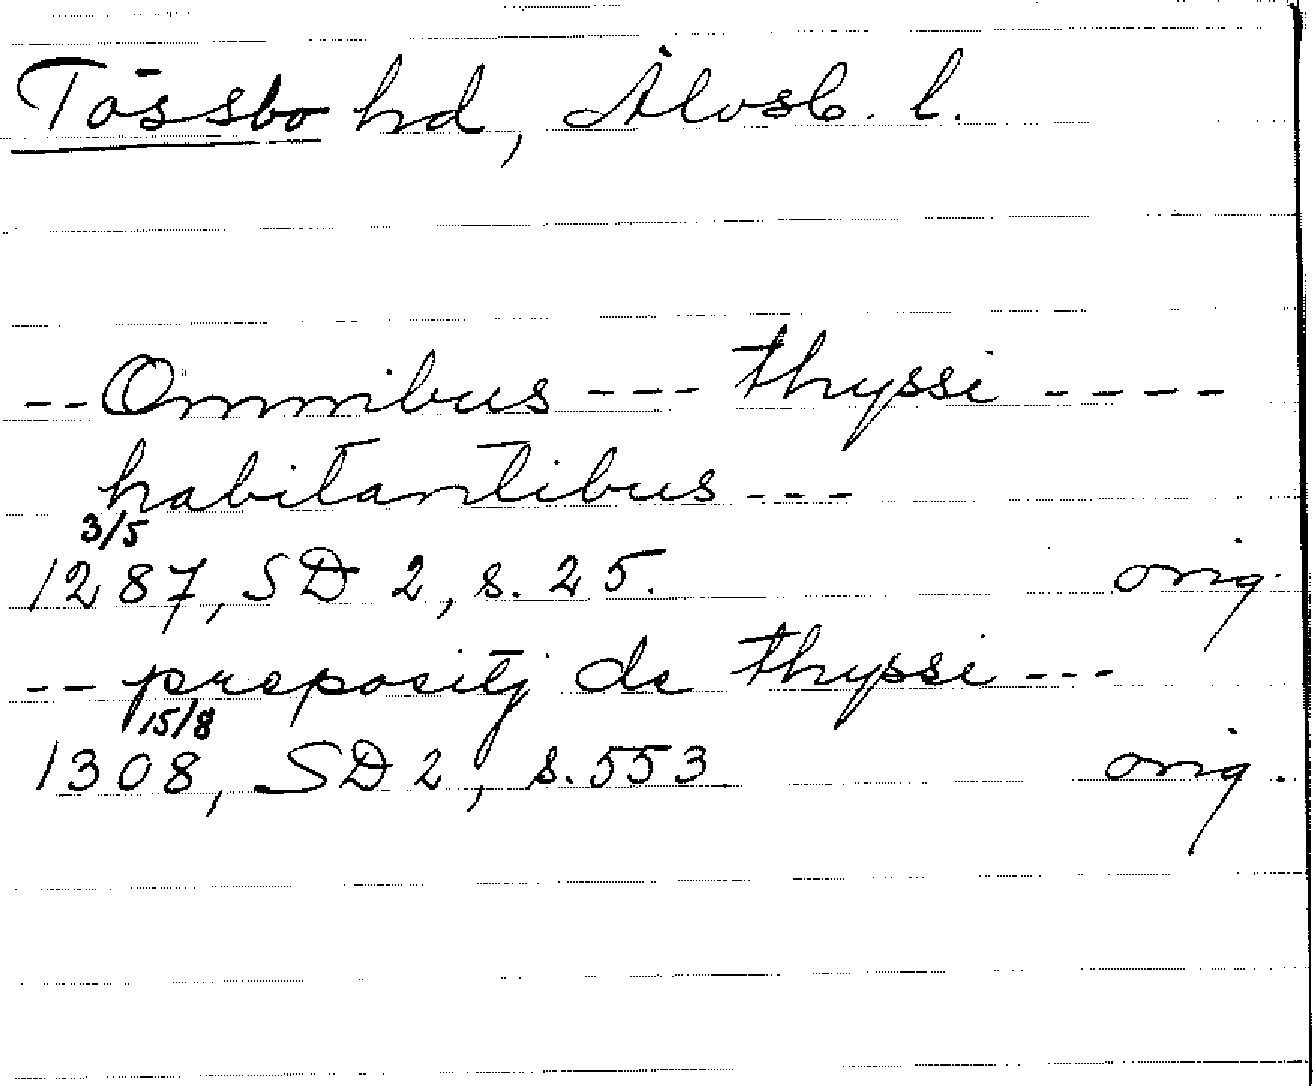 Tössbo hd, Älvsb. l.
-- Omnibus --- thyssi ----
habitantibus ---
3/5
1287, SD 2, s. 25. orig.
-- prepositj de thyssi ---
15/8
1308, SD 2, s. 553 orig.